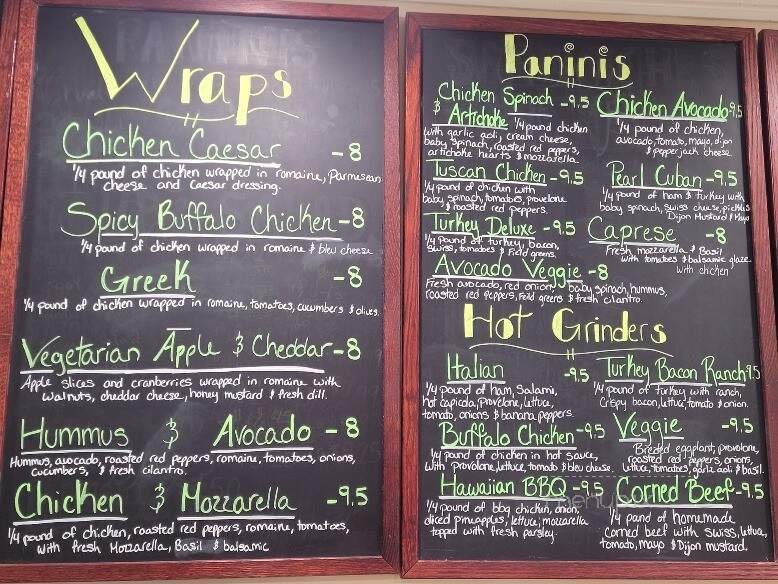 Wraps
Chicken Caesar - 8
1/4 pound of chicken wrapped in romaine, Parmesean
cheese and Caesar dressing.
Spicy Buffalo Chicken - 8
1/4 pound of chicken wrapped in romaine & bleu cheese
Greek - 8
1/4 pound of chicken wrapped in romaine, tomatoes, cucumbers & olives.
Vegetarian Apple & Cheddar - 8
Apple slices and cranberries wrapped in romaine with
walnuts, cheddar cheese, honey mustard & fresh dill.
Hummus & Avocado - 8
Hummus, avocado, roasted red peppers, romaine, tomatoes, onions,
cucumbers, & fresh cilantro.
Chicken & Mozzarella - 9.5
1/4 pound of chicken, roasted red peppers, romaine, tomatoes,
with fresh Mozzarella, Basil & balsamic
Paninis
Chicken Spinach - 9.5
& Artichoke 1/4 pound chicken
with garlic aoli, cream cheese,
baby spinach, roasted red peppers,
artichoke hearts & mozzarella
Chicken Avocado - 9.5
1/4 pound of chicken,
avocado, tomato, mayo, dijon
& pepperjack cheese
Tuscan Chicken - 9.5
1/4 pound of chicken with
baby spinach, tomatoes, provelone
& roasted red peppers.
Pearl Cuban - 9.5
1/4 pound of ham & turkey with
baby spinach, swiss cheese, pickles
Dijon Mustard & Mayo
Turkey Deluxe - 9.5
1/4 pound of turkey, bacon,
swiss, tomatoes & field greens
Caprese - 8
Fresh mozzarella & Basil
with tomatoes & balsamic glaze
with chicken
Avocado Veggie - 8
Fresh avocado, red onion, baby spinach, hummus,
roasted red peppers, Feild greens & fresh cilantro.
Hot Grinders
Italian - 9.5
1/4 pound of ham, Salami,
hot capicola, provelone, lettuce,
tomato, onions & banana peppers.
Turkey Bacon Ranch 9.5
1/4 pound of turkey with ranch,
Crispy bacon, lettuce, tomato & onion.
Buffalo Chicken - 9.5
1/4 pound of chicken in hot sauce,
with provolone, lettuce, tomato & bleu cheese.
Veggie - 9.5
eggplant, provolone,
roasted red peppers, onions,
lettuce, tomatoes, garlic aoli & basil.
Hawaiian BBQ - 9.5
1/4 pound of bbq chicken, onion,
diced pineapples, lettuce, mozzarella
topped with fresh parsley.
Corned Beef - 9.5
1/4 pound of homemade
Corned beef with swiss, lettuce,
tomato, mayo & Dijon mustard.